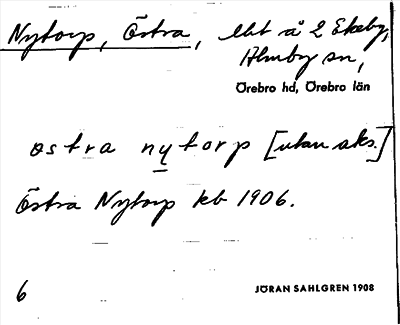 Nytorp, Östra, lht å 2 Ekeby,
Almby sn,
Örebro hd, Örebro län
ostra nytorp [utan aks.]
Östra Nytorp kb 1906.
6 JÖRAN SAHLGREN 1908